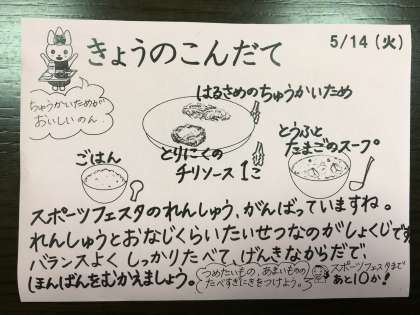 きょうのこんだて
5/14（火）
ちゅうかいためが
おいしいのん
はるさめのちゅうかいため
とりにくの
チリソース 1こ
とうふと
たまごのスープ
ごはん
スポーツフェスタのれんしゅう、がんばっていますね。
れんしゅうとおなじくらいたいせつなのがしょくじです
バランスよく しっかりたべて、げんきなからだで
ほんばんをむかえましょう。
つめたいもの、あまいものの
たべすぎにきをつけよう。
スポーツフェスタまで
あと10か!